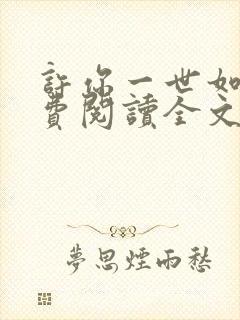 許你一世如
費閱讀全文
夢思煙雨愁